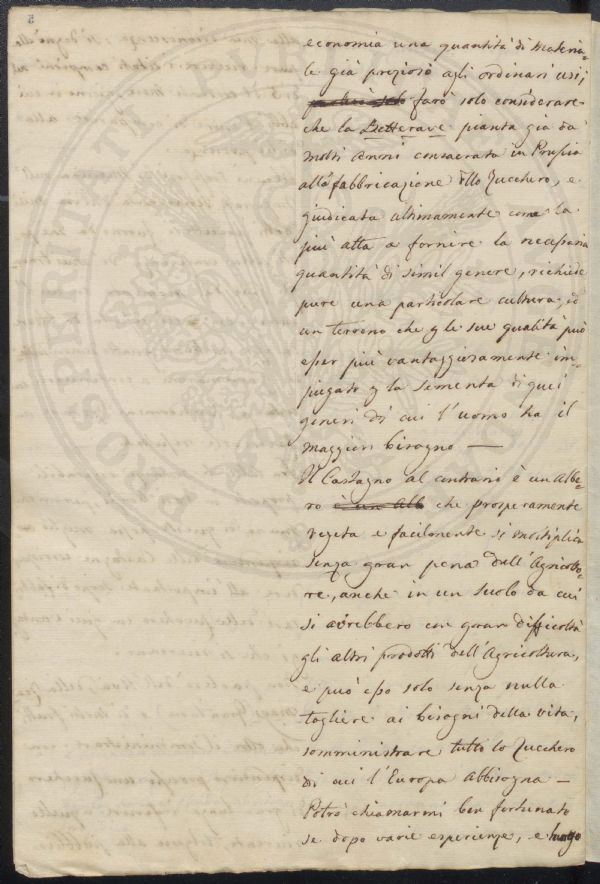 economia una quantità di materia-
le già prezioso agli ordinari usi,
farò solo considerare
che la Betterave pianta già da
molti anni consacrata in Prussia
alla fabbricazione dllo Zucchero, e
giudicata ultimamente come la
più atta a fornire la necessaria
quantità di simil genere, richiede
pure una particolare cultura, ed
un terreno che p le sue qualità può
esser più vantaggiosamente im-
piegato p la sementa di quei
generi di cui l'uomo ha il
maggiori bisogno —
Il Castagno al contrario è un Albe-
ro è un Alb che prosperamente
vegeta e facilmente si moltiplica
senza gran pena dell'Agricolto-
re, anche in un suolo da cui
si avrebbero con gran difficoltà
gli altri prodotti dell'Agricoltura,
e può esso solo senza nulla
togliere ai bisogni della vita,
somministrare tutto lo Zucchero
di cui l'Europa abbisogna —
Potrò chiamarmi ben fortunato
se dopo varie esperienze, e lungo